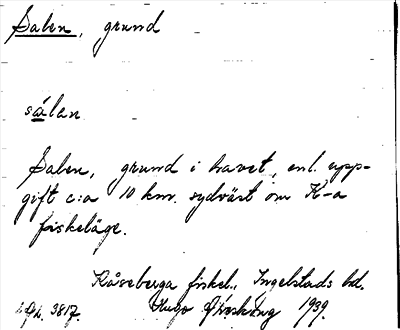 Salen, grund
sálan
Salen, grund i havet, enl. upp-
gift c:a 10 km. sydväst om K-a
fiskeläge.
Kåseberga fiskel., Ingelstads hd.
Hugo Areskoug 1939.
3817.